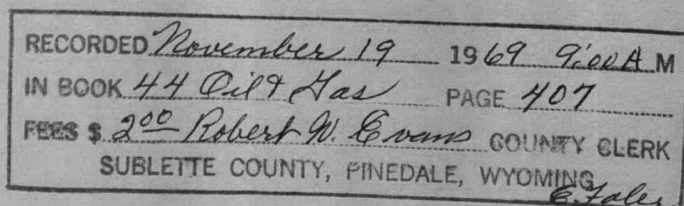 RECORDED November 19 1969 9:00 A M
IN BOOK 44 Oil & Gas PAGE 407
FEES $ 2 00 Robert W. Evans COUNTY CLERK
SUBLETTE COUNTY, PINEDALE, WYOMING